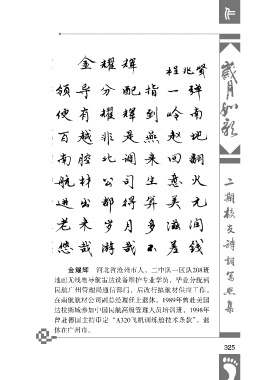 金耀辉
程兆贤
领导分配指一弹
便有耀辉到岭南
百越非是燕赵地
南腔北调来回翻
航材公司生意火
进出都得算美元
老来岁月多滋润
悠哉游哉不差钱
金耀辉 河北省沧州市人。二中队一区队208班
地面无线电导航雷达设备维护专业学员，毕业分配到
民航广州管理局通信部门，后改行搞航材供应工作，
在南航航材公司副总经理任上退休。1989年曾赴美国
达拉斯城参加中国民航高级管理人员培训班，1998年
曾赴德国主持审定“A320飞机训练技术条款”。退
休在广州市。
岁月如歌
二期校友诗词写照集
325